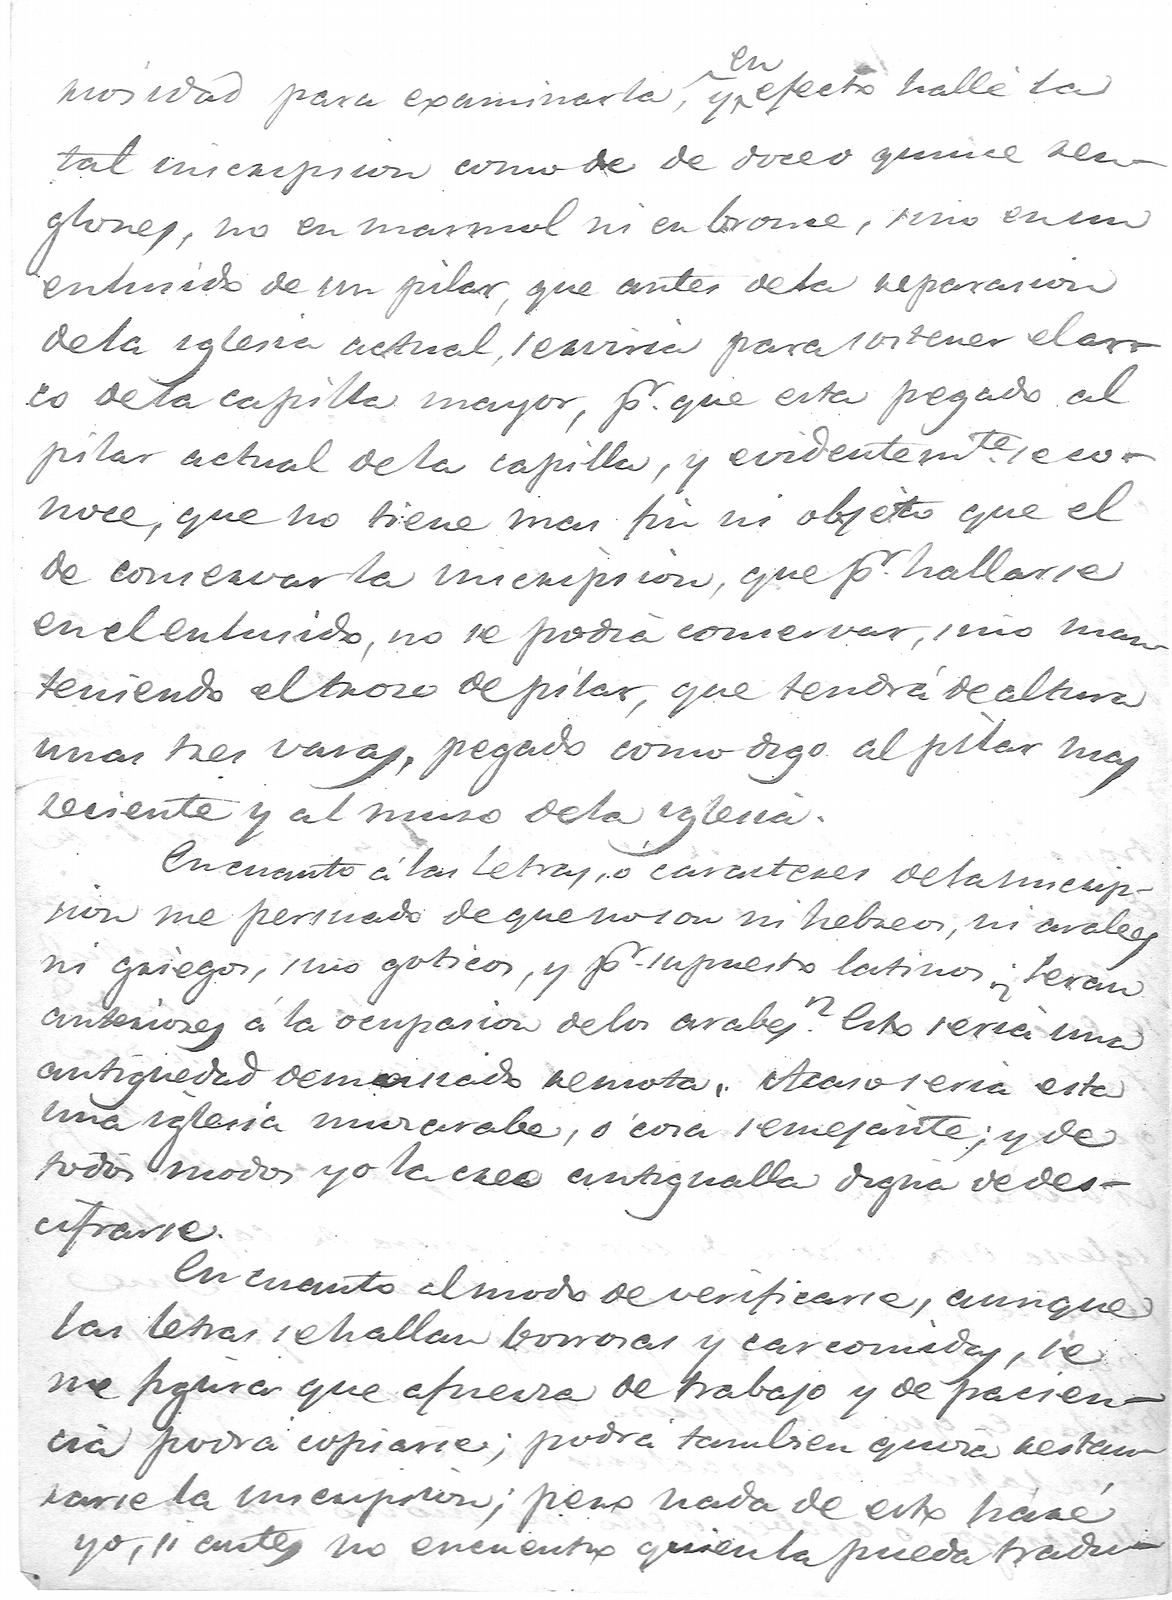 riosidad para examinarla, y en efecto hallé la
tal inscripsion como de de doce o quince ren-
glones, no en marmol ni en bronce, sino en un
enlusido de un pilar, que antes de la reparasion
de la iglesia actual, serviria para sostener el ar-
co de la capilla mayor, pr. que esta pegado al
pilar actual de la capilla, y evidentemte. se co-
noce, que no tiene mas fin ni objeto que el
de conservar la inscripsion, que pr. hallarse
en el enlusido, no se podia conservar, sino man-
teniendo el troso de pilar, que tendrá de altura
unas tres varas, pegado como digo al pilar mas
reciente y al muro de la iglesia.
En cuanto á las letras, ó caracteres de la inscrip-
sion me persuado de que no son ni hebreos, ni arabes
ni griegos, sino goticos, y pr. supuesto latinos ¿Seran
anteriores á la ocupasion de los arabes? Esto seria una
antiguedad demasiado remota. Acaso seria esta
una iglesia musarabe, ó cosa semejante; y de
todos modos yo la creo antigualla digna de des-
cifrarse.
En cuanto al modo de verificarse, aunque
las letras se hallan borrosas y carcomidas, se
me figura que afuersa de trabajo y de pacien-
cia podrá copiarse; podrá tambien quisa restau-
rarse la inscripsion; pero nada de esto háré
yo, si antes no encuentro quien la pueda tradu-